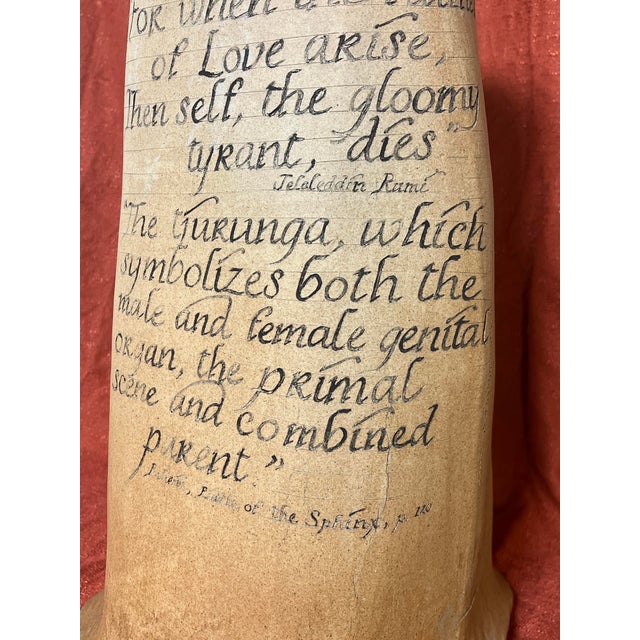 for when the
of Love arise,
Then self, the gloomy
tyrant, dies"
Jelaleddin Rumi
"The tjurunga, which
symbolizes both the
male and female genital
organ, the primal
scene and combined
parent."
of the Sphinx, p.